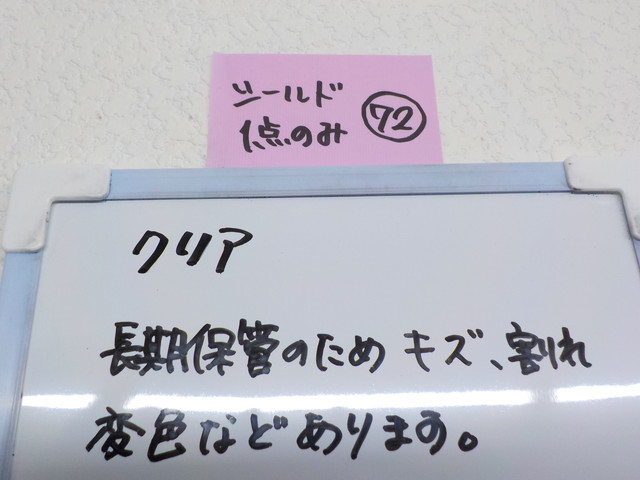 シールド
1点のみ 72
クリア
長期保管のため キズ、割れ
変色などあります。